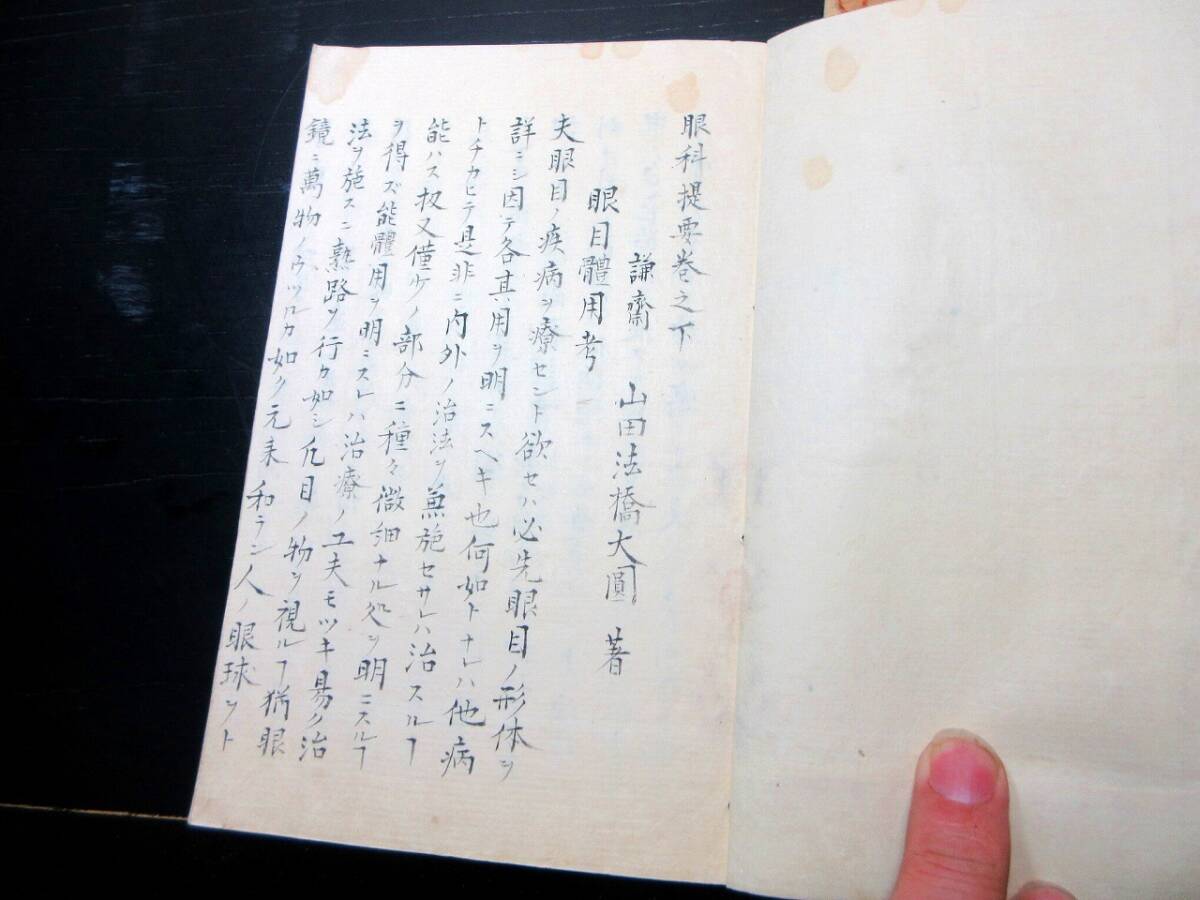 眼科提要巻之下
謙齋 山田法橋大圓 著
眼目體用考
夫眼目ノ疾病ヲ療セント欲セハ必先眼目ノ形体ヲ
詳ニシ因テ各其用ヲ明ニスヘキ也何如トナレハ他病
トチカヒテ是非ニ内外ノ治法ヲ兼施セサレハ治スルヿ
能ハス扨又僅少ノ部分ニ種々微細ナル処ヲ明ニスルヿ
ヲ得ズ能體用ヲ明ニスレハ治療ノ工夫モツキ易ク治
法ヲ施スニ熟路ヲ行カ如シ凡目ノ物ヲ視ルヿ猶眼
鏡ニ萬物ノウツルカ如ク元来和ラン人ノ眼球ヲト